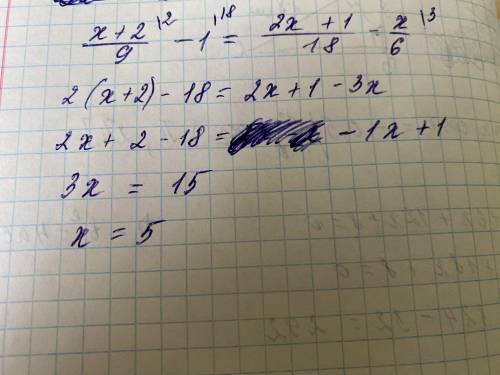 (x+2)/9 \2 - 1 \18 = (2x+1)/18 - x/6 \3
2(x+2)-18 = 2x+1-3x
2x+2-18 = -1x+1
3x = 15
x = 5